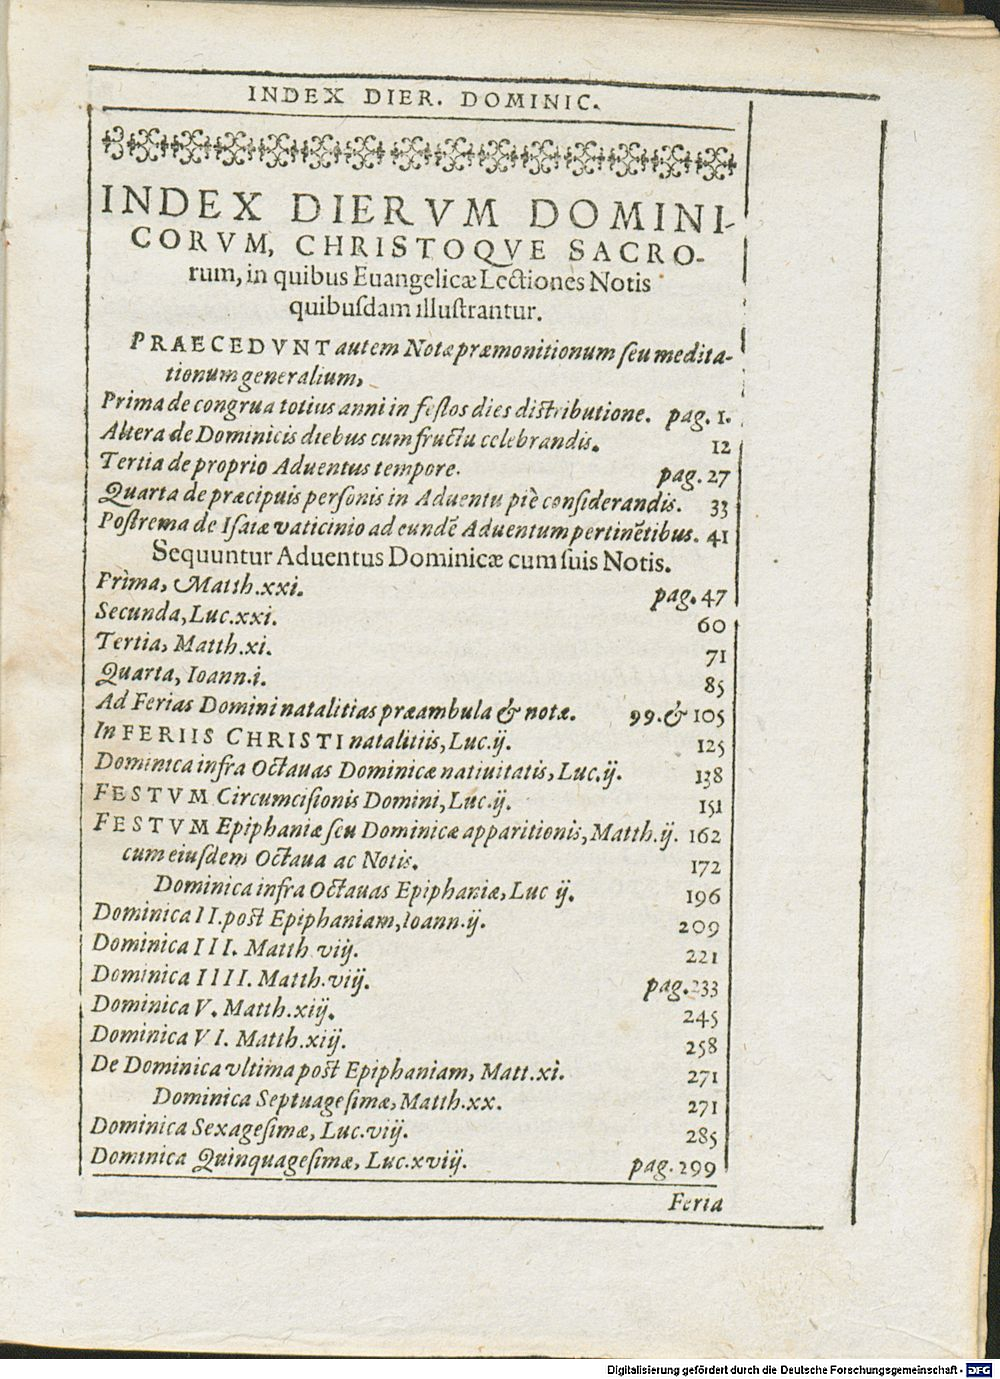 INDEX DIER. DOMINIC.
INDEX DIERVM DOMINI-
CORVM, CHRISTOQVE SACRO-
rum, in quibus Euangelicæ Lectiones Notis
quibuſdam illuſtrantur.
PRAECEDVNT autem Notæ præmonitionum ſeu medita-
tionum generalium,
Prima de congrua totius anni in feſtos dies diſtributione. pag. 1.
Altera de Dominicis diebus cum fructu celebrandis. 12
Tertia de proprio Aduentus tempore. pag. 27
Quarta de præcipuis perſonis in Aduentu piè conſiderandis. 33
Poſtrema de Iſaiæ vaticinio ad eundẽ Aduentum pertinẽtibus. 41
Sequuntur Aduentus Dominicæ cum ſuis Notis.
Prima, Matth.xxi. pag. 47
Secunda, Luc.xxi. 60
Tertia, Matth.xi. 71
Quarta, Ioann.i. 85
Ad Ferias Domini natalitias præambula & notæ. 99.& 105
In FERIIS CHRISTI natalitiis, Luc.ij. 125
Dominica infra Octauas Dominicæ natiuitatis, Luc.ij. 138
FESTVM Circumciſionis Domini, Luc.ij. 151
FESTVM Epiphaniæ ſeu Dominicæ apparitionis, Matth.ij. 162
cum eiuſdem Octaua ac Notis. 172
Dominica infra Octauas Epiphaniæ, Luc ij. 196
Dominica II. poſt Epiphaniam, Ioann.ij. 209
Dominica III. Matth viij. 221
Dominica IIII. Matth.viij. pag.233
Dominica V. Matth.xiij. 245
Dominica VI. Matth.xiij. 258
De Dominica vltima poſt Epiphaniam, Matt.xi. 271
Dominica Septuageſimæ, Matth.xx. 271
Dominica Sexageſimæ, Luc.viij. 285
Dominica Quinquageſimæ, Luc.xviij. pag.299
Feria
Digitalisierung gefördert durch die Deutsche Forschungsgemeinschaft - DFG